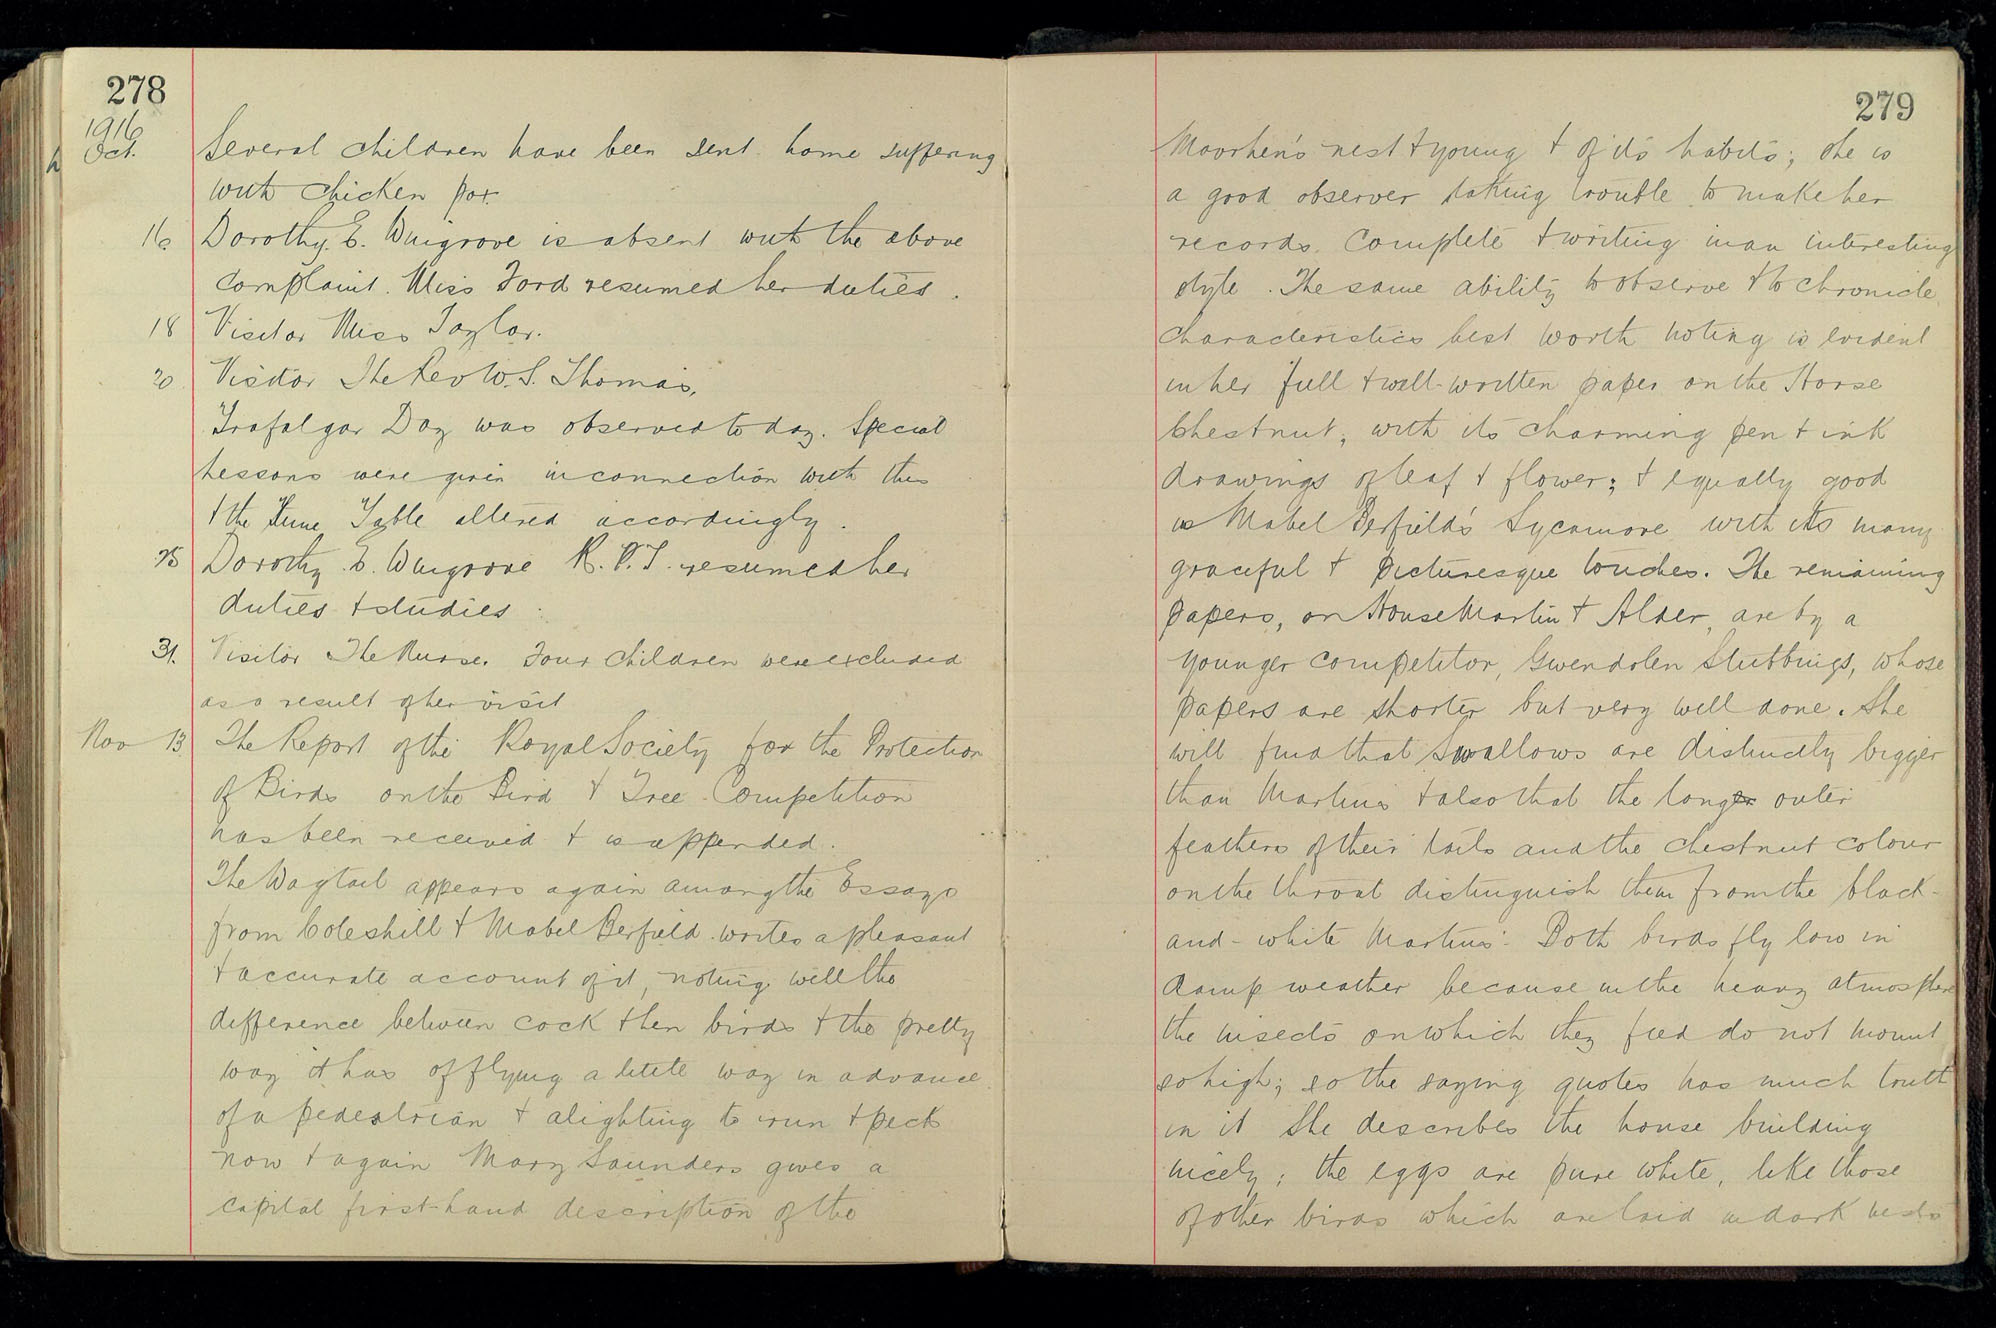 278
1916
Oct. Several children have been sent home suffering
with chicken pox.
16 Dorothy. E. Wingrove is absent with the above
complaint. Miss Ford resumed her duties.
18 Visitor Miss Taylor.
20 Visitor The Rev W. S. Thomas.
Trafalgar Day was observed to day. Special
Lessons were given in connection with this
& the Time Table altered accordingly.
25 Dorothy. E. Wingrove R.P.T. resumed her
duties & studies.
31. Visitor The Nurse. Four children were excluded
as a result of her visit
Nov 13 The Report of the Royal Society for the Protection
of Birds on the Bird & Tree Competition
has been received & is appended.
The Wagtail appears again among the Essays
from Coleshill & Mabel Perfield writes a pleasant
& accurate account of it, noting well the
difference between cock & hen birds & the pretty
way it has of flying a little way in advance
of a pedestrian & alighting to run & peck
now & again Mary Saunders gives a
capital first-hand description of the
279
Moorhen's nest & young & of its habits; she is
a good observer taking trouble to make her
records complete & writing in an interesting
style. The same ability to observe & to chronicle
characteristics best worth noting is evident
in her full & well-written paper on the Horse
Chestnut, with its charming pen & ink
drawings of leaf & flower; & equally good
is Mabel Perfield's Sycamore with its many
graceful & picturesque touches. The remaining
papers, on House Martin & Alder, are by a
younger competitor, Gwendolen Stubbings, whose
papers are shorter but very well done. She
will find that Swallows are distinctly bigger
than Martins & also that the longer outer
feathers of their tails and the chestnut colour
on the throat distinguish them from the black-
and-white Martins. Both birds fly low in
damp weather because in the heavy atmosphere
the insects on which they feed do not mount
so high; so the saying quotes has much truth
in it She describes the house building
nicely; the eggs are pure white, like those
of other birds which are laid in dark nests